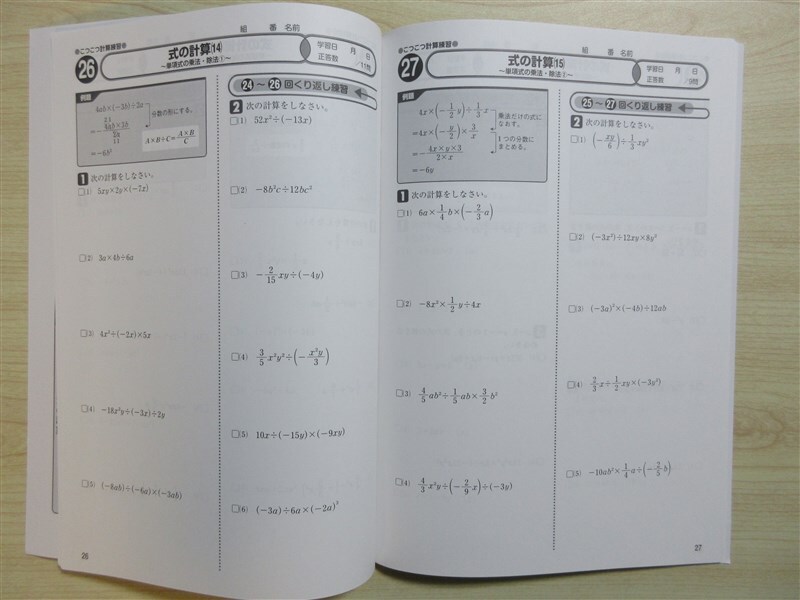 組 番 名前
●こつこつ計算練習●
26
式の計算⒁
～単項式の乗法・除法①～
学習日 月 日
正答数 /11問
例題
4ab×(−3b)÷2a
分数の形にする。
=−4ab×3b/2a
A×B÷C=A×B/C
=−6b²
1 次の計算をしなさい。
□⑴ 5xy×2y×(−7x)
□⑵ 3a×4b÷6a
□⑶ 4x²÷(−2x)×5x
□⑷ −18x²y÷(−3x)÷2y
□⑸ (−8ab)÷(−6a)×(−3ab)
24 ～ 26 回くり返し練習
2 次の計算をしなさい。
□⑴ 52x²÷(−13x)
□⑵ −8b²c÷12bc²
□⑶ −2/15 xy÷(−4y)
□⑷ 3/5 x²y²÷(−x²y/3)
□⑸ 10x÷(−15y)×(−9xy)
□⑹ (−3a)÷6a×(−2a)³
26
組 番 名前
●こつこつ計算練習●
27
式の計算⒂
～単項式の乗法・除法②～
学習日 月 日
正答数 /9問
例題
4x×(−1/2 y)÷1/3 x
乗法だけの式に
なおす。
=4x×(−y/2)×3/x
1つの分数に
まとめる。
=−4x×y×3/2×x
=−6y
1 次の計算をしなさい。
□⑴ 6a×1/4 b×(−2/3 a)
□⑵ −8x²×1/2 y÷4x
□⑶ 4/5 ab²÷1/5 ab×3/2 b²
□⑷ 4/3 x²y÷(−2/9 x)÷(−3y)
25 ～ 27 回くり返し練習
2 次の計算をしなさい。
□⑴ (−xy/6)÷1/3 xy²
□⑵ (−3x²)÷12xy×8y²
□⑶ (−3a)²×(−4b)÷12ab
□⑷ 2/3 x÷1/2 xy×(−3y²)
□⑸ −10ab²×1/4 a÷(−2/5 b)
27